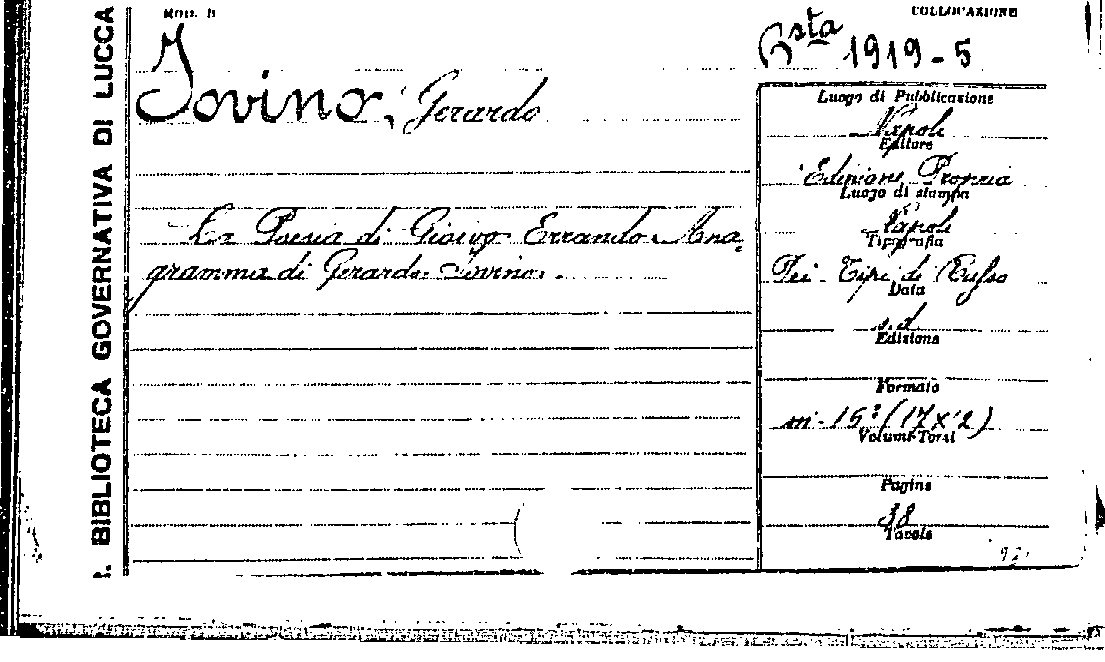 MOD. B
COLLOCAZIONE
Bsta 1919-5
Iovino, Gerardo
Luogo di Pubblicazione
Napoli
Editore
Edizione Propria
Luogo di stampa
Napoli
Tipografia
Dei Tipi di Russo
Data
s.d.
Edizione
La Poesia di Giaivo Errando Ana
gramma di Gerardo Iovino.
Formato
in-16° (17x12)
Volumi-Tomi
Pagine
38
Tavole
R. BIBLIOTECA GOVERNATIVA DI LUCCA